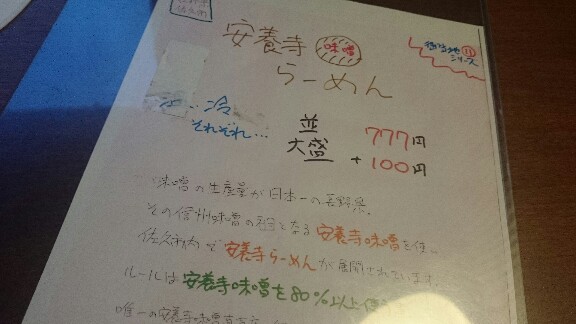 安養寺 味噌
らーめん
御当地 11
シリーズ
冷
それぞれ…
並 777円
大盛 +100円
味噌の生産量が日本一の長野県。
その信州味噌の祖となる安養寺味噌を使し
佐久市内で安養寺らーめんが展開されています。
ルールは安養寺味噌を80%以上使
唯一の安養寺味噌